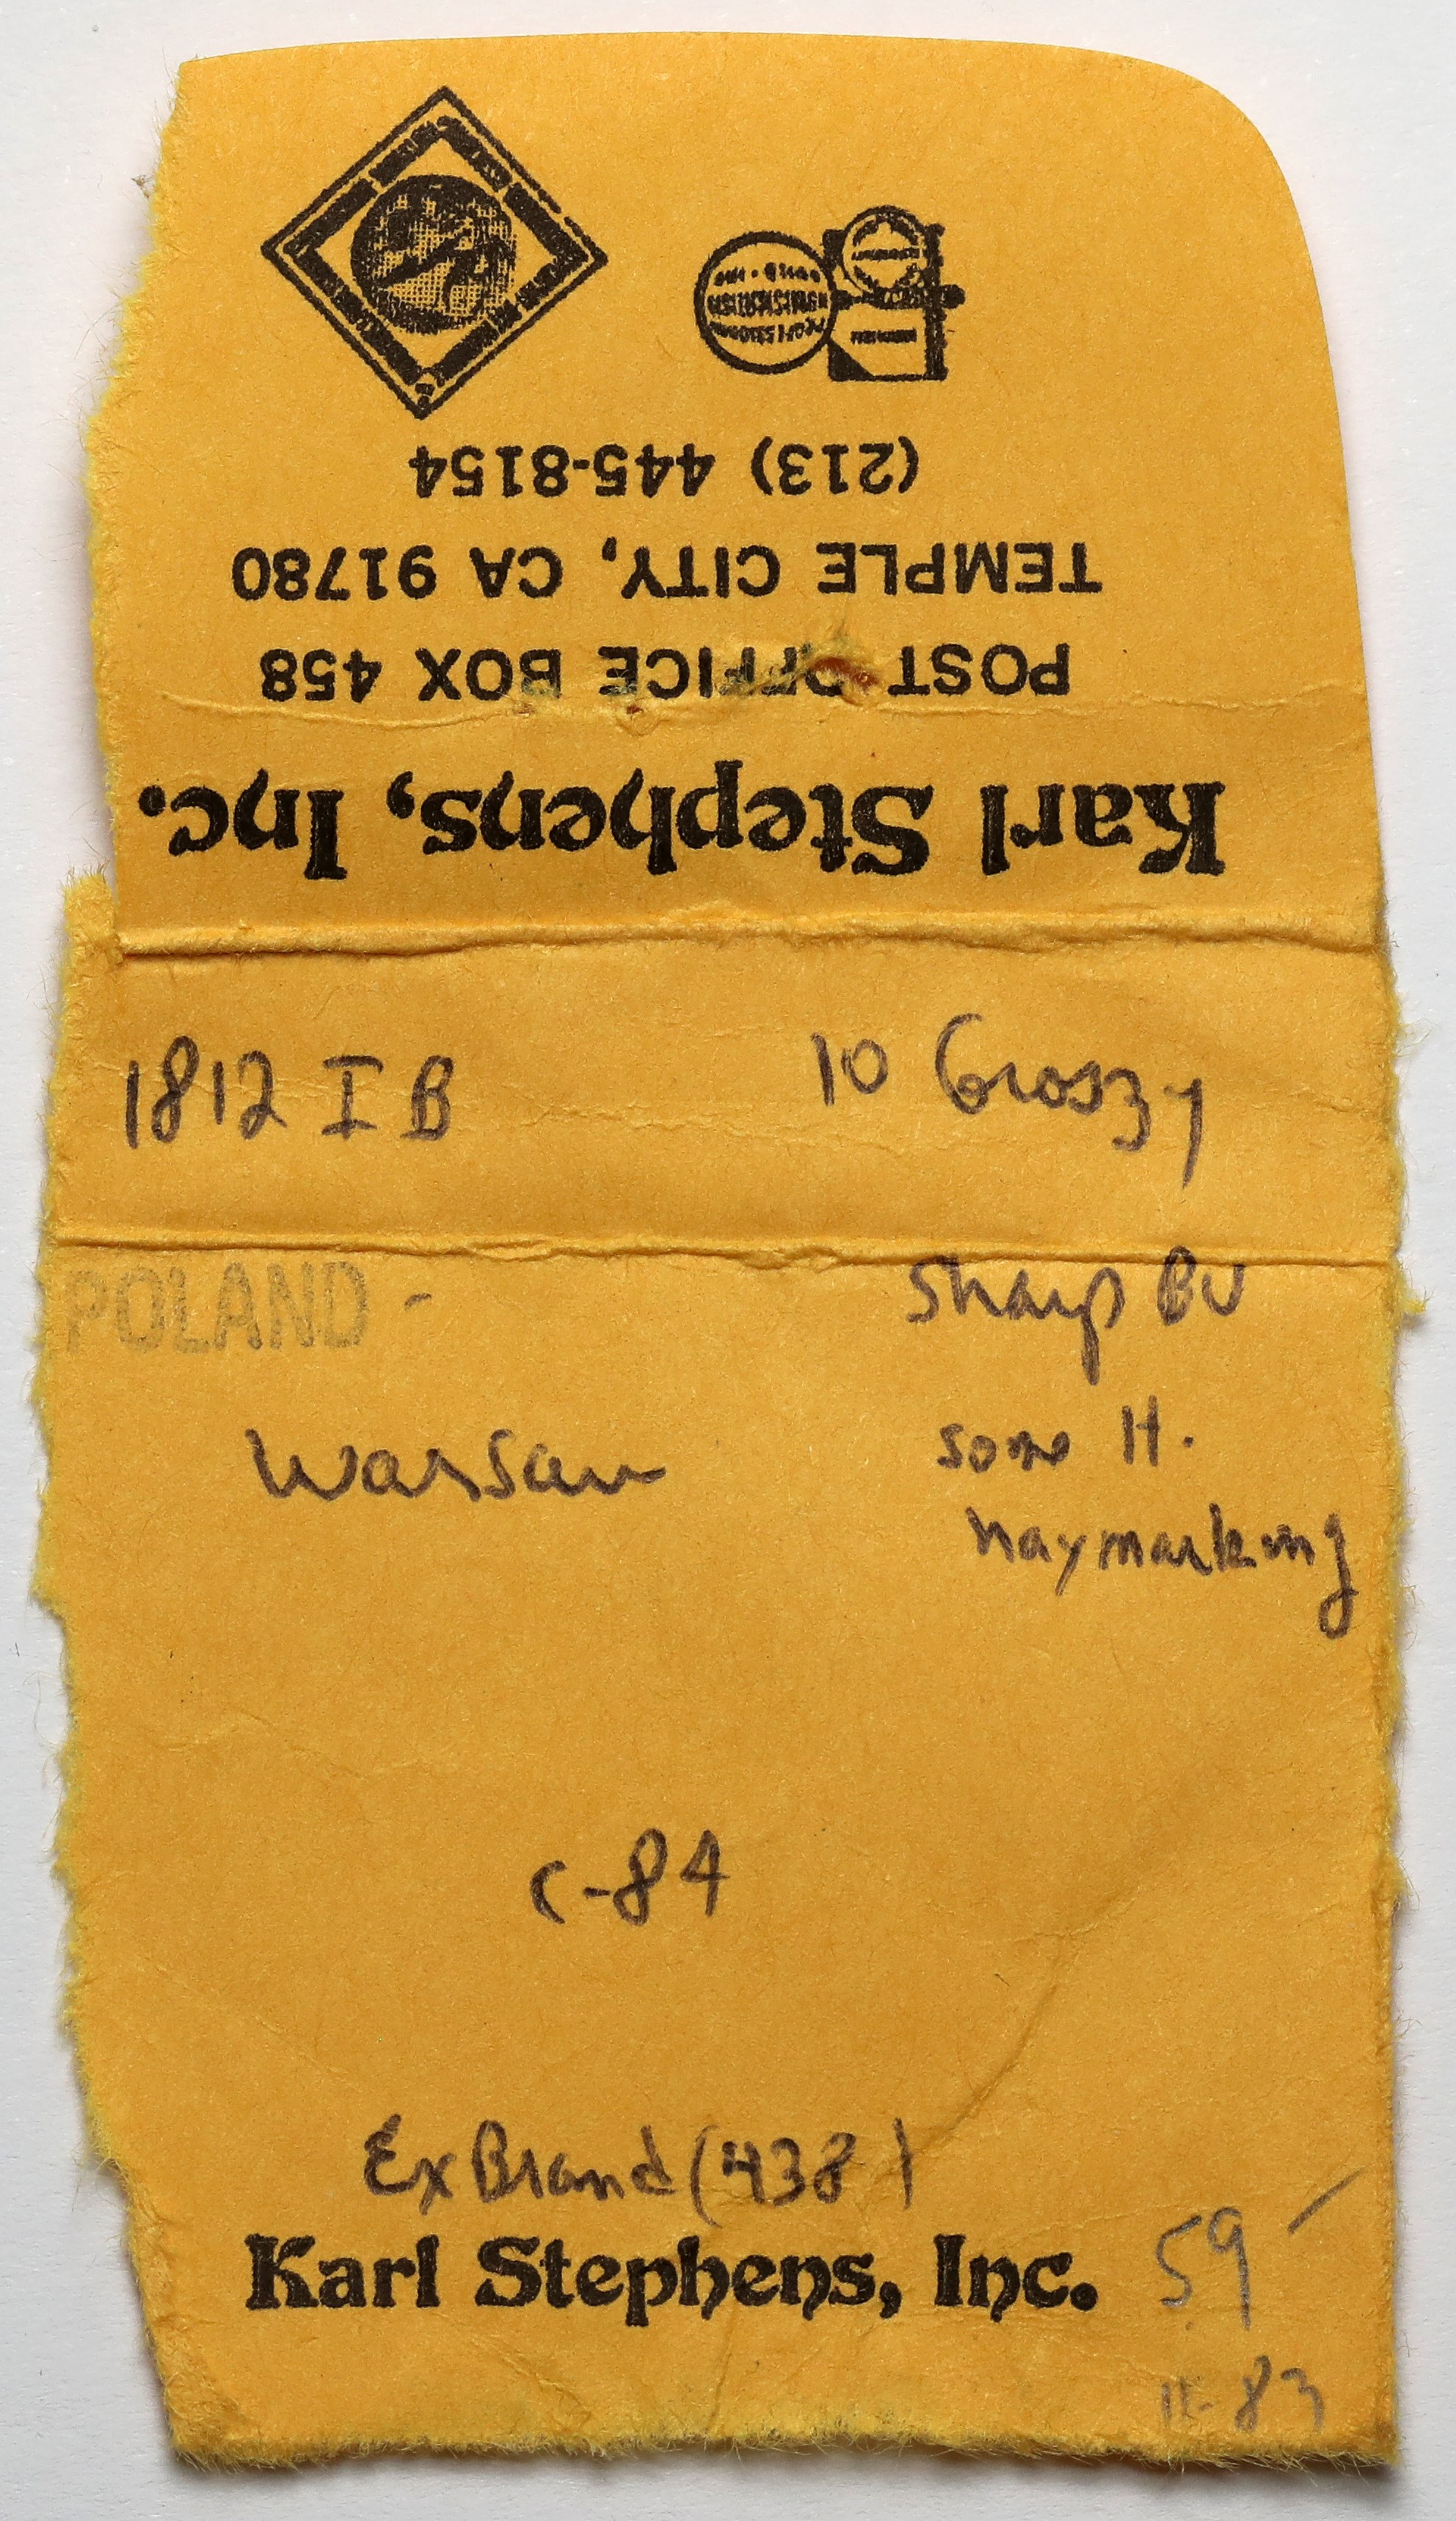 Karl Stephens, Inc.
POST OFFICE BOX 458
TEMPLE CITY, CA 91780
(213) 445-8154
1812 I B 10 Groszy
POLAND - Sharp BU
Warsaw some H.
haymarking
C-84
Ex Brand (438)
Karl Stephens, Inc. 59 -
11-83